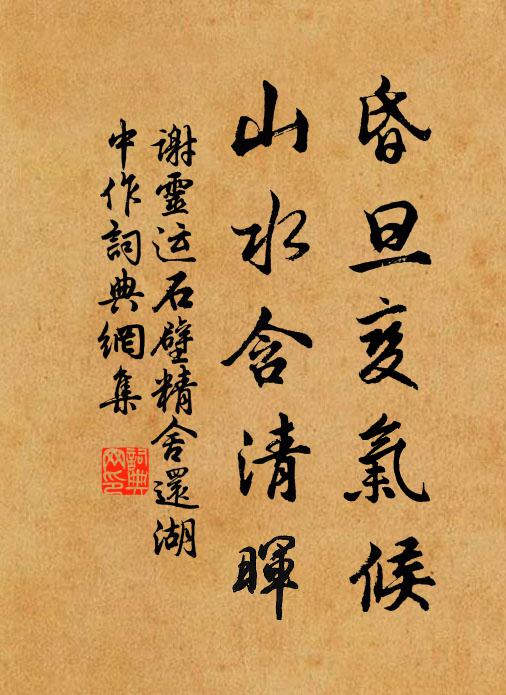 昏旦变氣候
山水含清暉
謝靈运石壁精舍還湖
中作詞典網集
詞典
网印